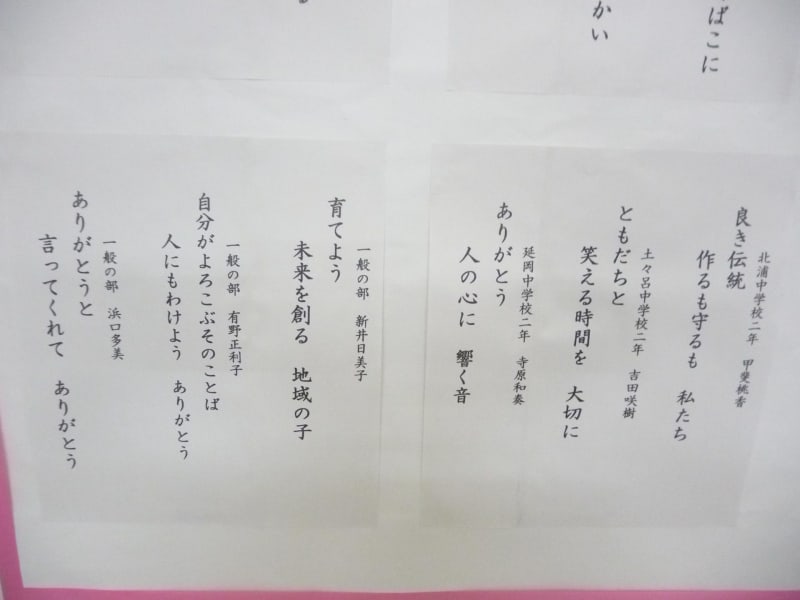 ばこに
かい
る
北浦中学校二年　甲斐桃香
良き伝統
作るも守るも　私たち
土々呂中学校二年　吉田咲樹
ともだちと
笑える時間を　大切に
延岡中学校二年　寺原和奏
ありがとう
人の心に　響く音
一般の部　新井日美子
育てよう
未来を創る　地域の子
一般の部　有野正利子
自分がよろこぶそのことば
人にもわけよう　ありがとう
一般の部　浜口多美
ありがとうと
言ってくれて　ありがとう